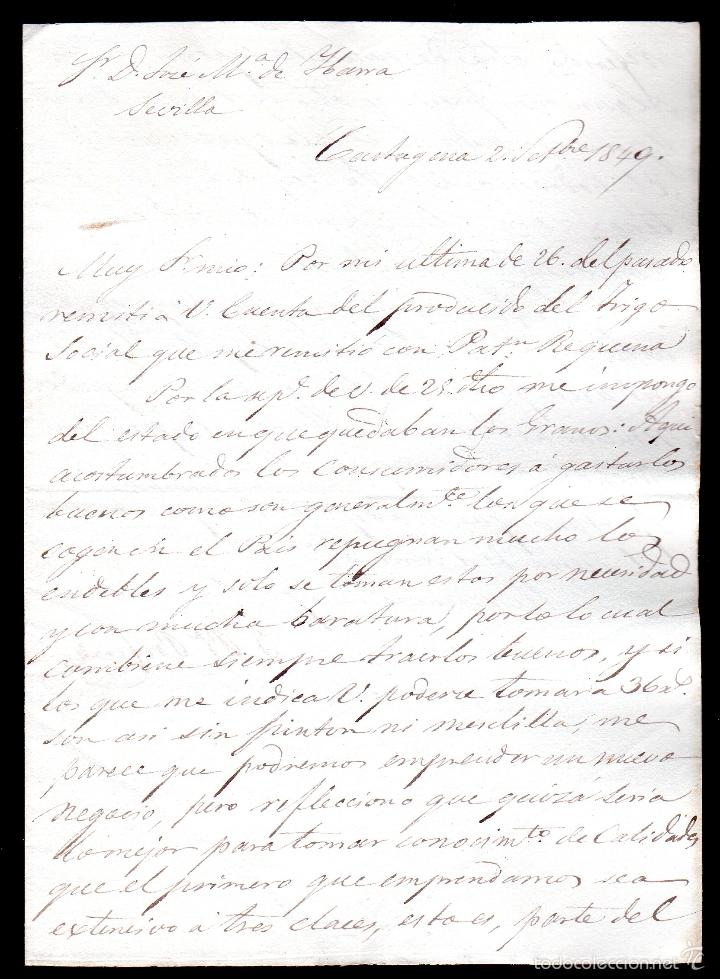 Sr. D. José Mª de Ybarra
Sevilla
Cartagena 2. Setbre 1849.
Muy Sr mio: Por mi ultima de 26. del pasado
remiti á V. Cuenta del producido del trigo
Social que me remitió con Patn Requena
Por la apª. de V. de 25. dho me impongo
del estado en que quedaban los Granos: Aqui
acostumbrados los Consumidores á gastarlos
buenos como son generalmte los que se
cogen en el Pais repugnan mucho los
endebles y solo se toman estos por necesidad
y con mucha baratura, por lo lo cual
combiene siempre traerlos buenos, y si
los que me indica V. poderse tomar a 36
son asi sin pinton ni mesclilla, me
parece que podremos emprender un nuevo
negocio, pero refflecciono que quizá seria
lo mejor para tomar conocimto de Calidades
que el primero que emprendamos sea
extensivo a tres claces, esto es, parte del
todocoleccion.net